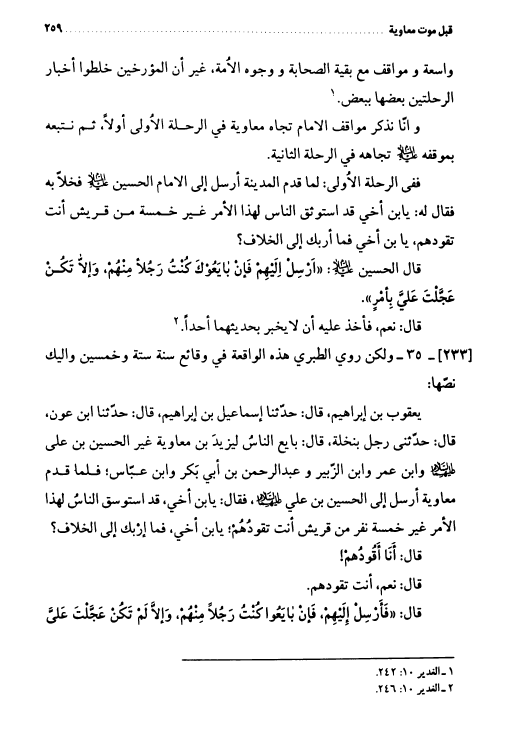 قبل موت معاوية ........ ٢٥٩
واسعة و مواقف مع بقية الصحابة و وجوه الأمة، غير أن المؤرخين خلطوا أخبار
الرحلتين بعضها ببعض.١
و انّا نذكر مواقف الامام تجاه معاوية في الرحلة الأولى أولاً، ثم نتبعه
بموقفه عليه السلام تجاهه في الرحلة الثانية.
ففى الرحلة الأولى: لما قدم المدينة أرسل إلى الامام الحسين عليه السلام فخلاً به
فقال له: يابن أخي قد استوثق الناس لهذا الأمر غير خمسة من قريش أنت
تقودهم، يا بن أخي فما أربك إلى الخلاف؟
قال الحسين عليه السلام: «اَرْسِلْ اِلَيْهِمْ فَاِنْ بٰايَعُوْكَ كُنْتُ رَجُلاً مِنْهُمْ، وَاِلاّٰ تَكُنْ
عَجَّلْتَ عَلَيَّ بِأَمْرٍ».
قال: نعم، فأخذ عليه أن لايخبر بحديثهما أحداً.٢
[٢٣٣] ـ ٣٥ ـ ولكن روي الطبري هذه الواقعة في وقائع سنة ستة وخمسين واليك
نصّها:
يعقوب بن إبراهيم، قال: حدّثنا إسماعيل بن إبراهيم، قال: حدّثنا ابن عون،
قال: حدّثنى رجل بنخلة، قال: بايع الناسُ ليزيدَ بن معاوية غير الحسين بن على
عليهما السلام وابن عمر وابن الزّبير و عبدالرحمن بن أبي بَكر وابن عبّاس؛ فلما قدم
معاوية أرسل إلى الحسين بن علي عليهما السلام، فقال: يابن أخي، قد استوسق الناسُ لهذا
الأمر غير خمسة نفر من قريش أنت تقودُهُمْ؛ يابن أخي، فما إرْبك إلى الخلاف؟
قال: أَنَا أَقُودُهمْ!
قال: نعم، أنت تقودهم.
قال: «فَأَرْسِلْ إِلَيْهِمْ، فَاِنْ بٰايَعُوا كُنْتُ رَجُلاً مِنْهُمْ، وَإلاَّ لَمْ تَكُنْ عَجَّلْتَ عَلَىَّ
١ ـ الغدير ١٠: ٢٤٢.
٢ ـ الغدير ١٠: ٢٤٦.